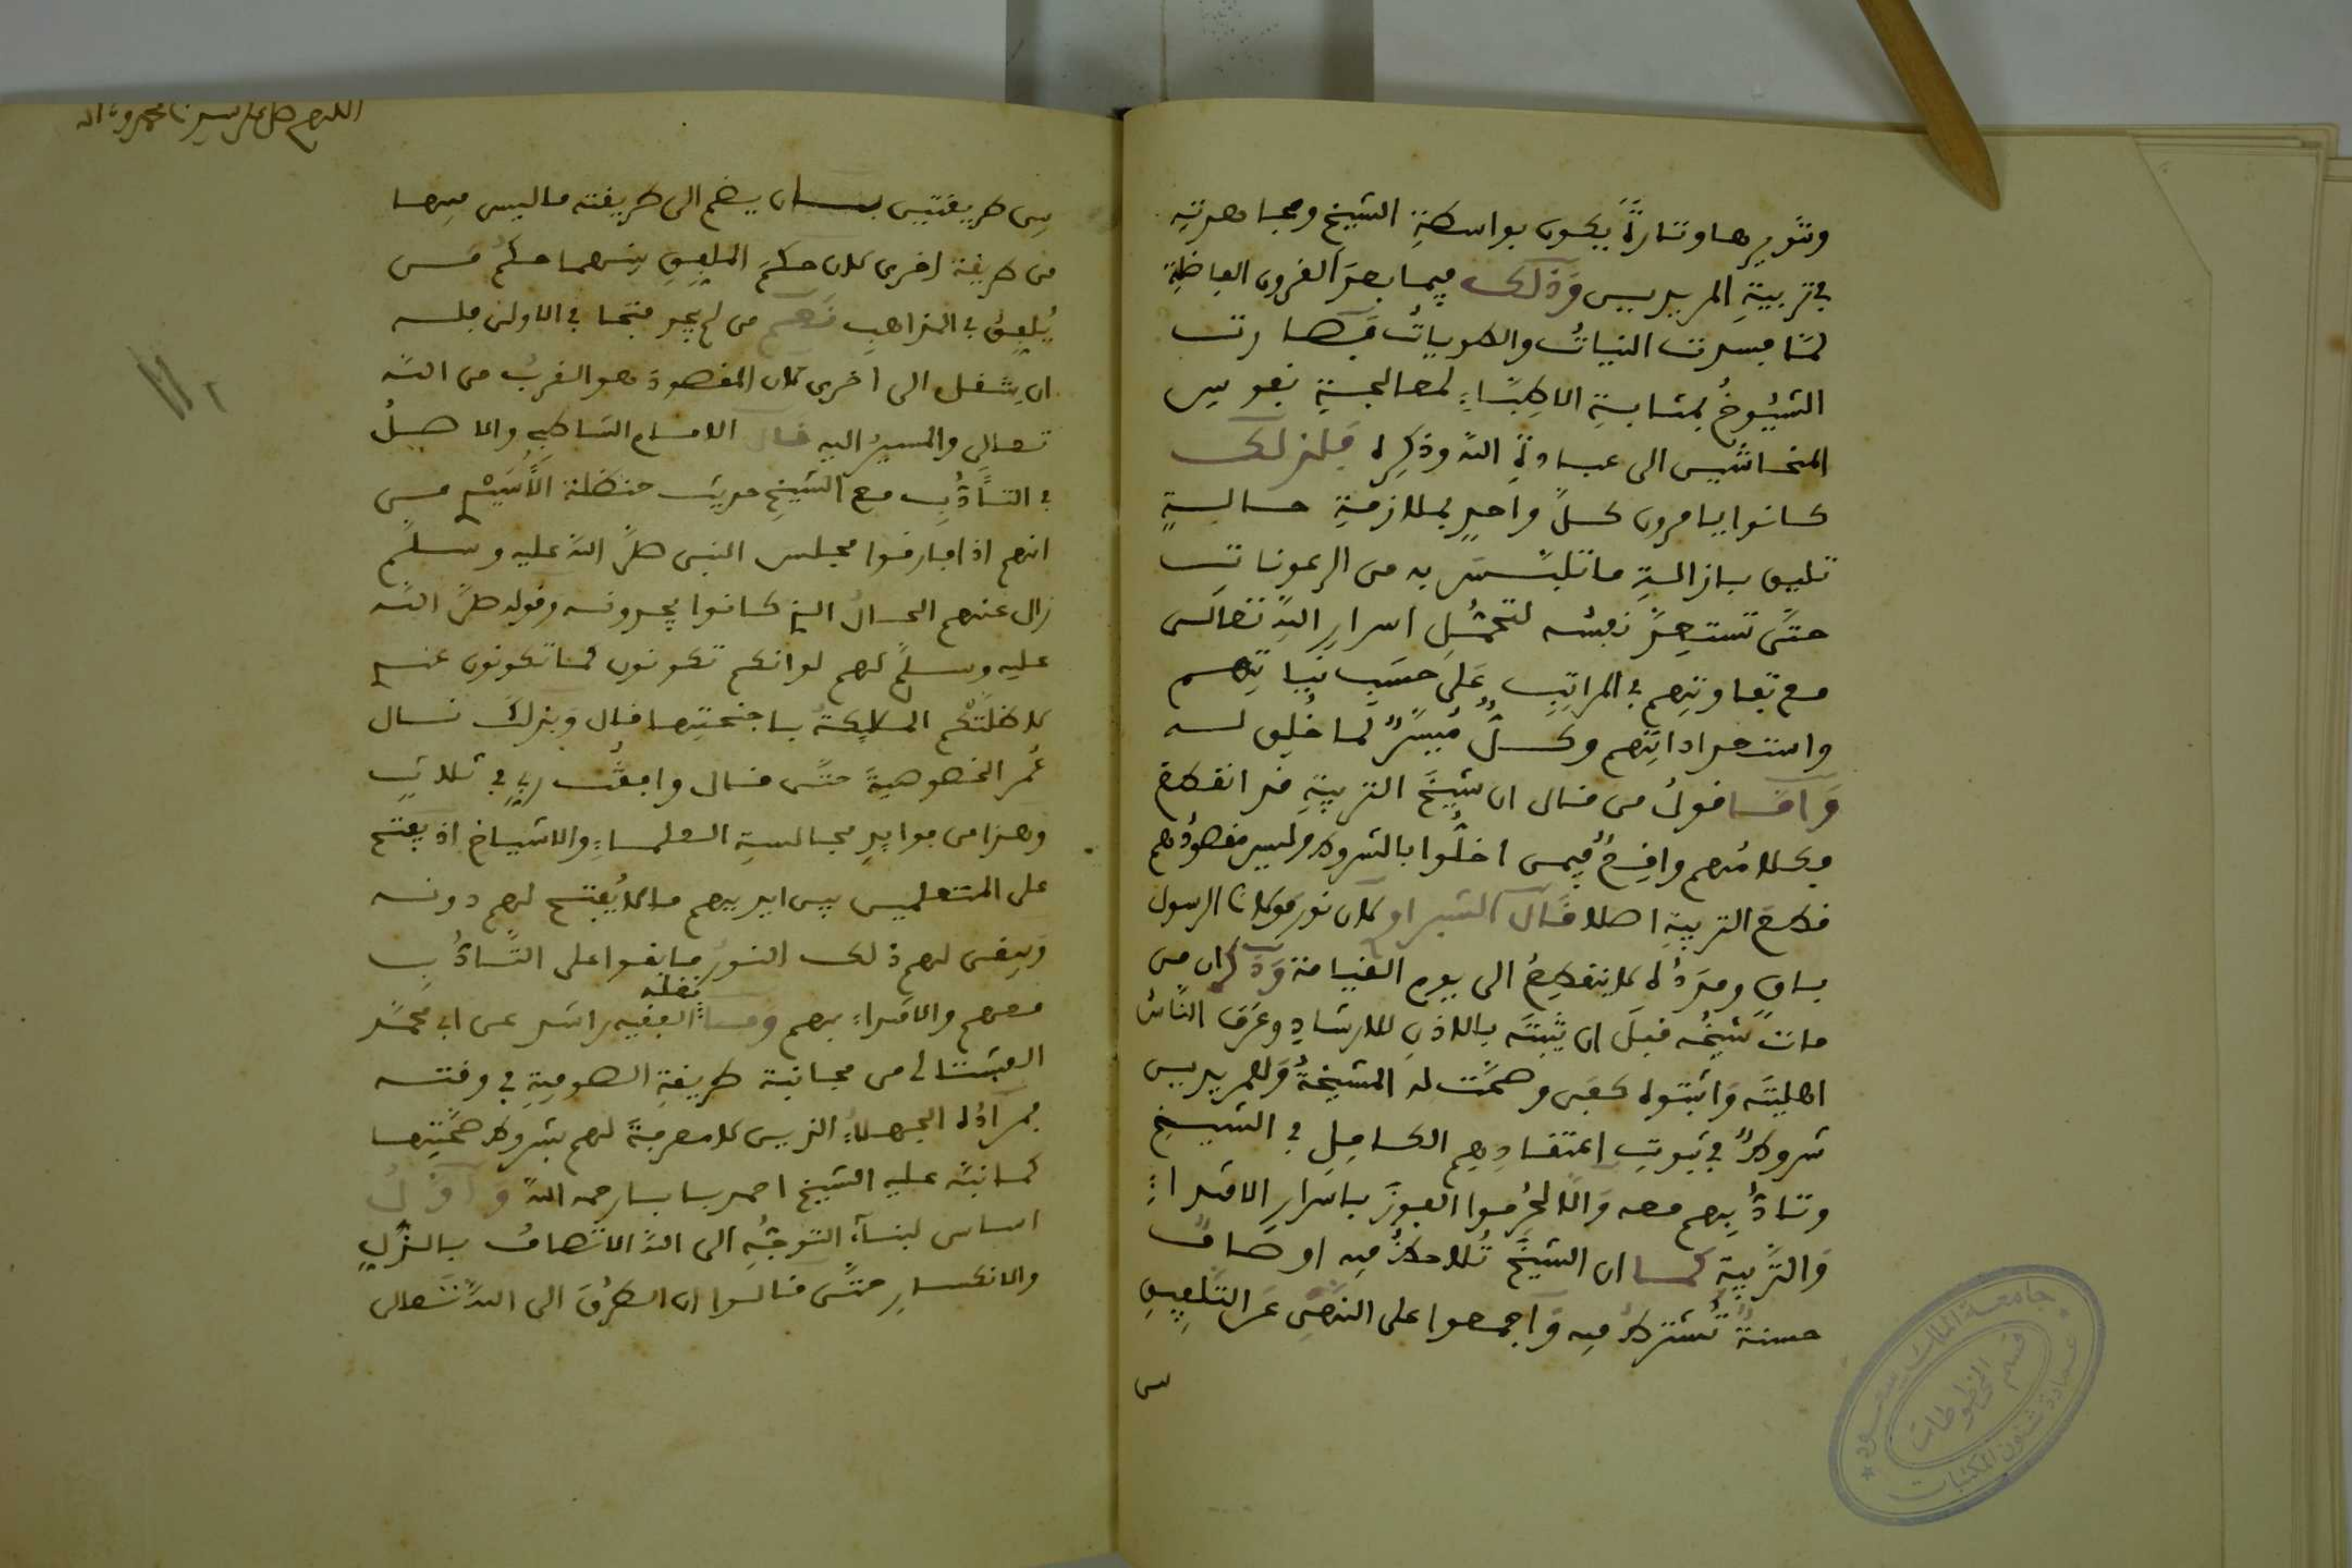 وتنويرها وتارةً يكون بواسطةِ الشيخِ ومجاهدتِه
في تربيةِ المريدين وَذلك فيما بعدَ القرون الفاضلةِ
لمّا فسدت النياتُ والطوياتُ فصارت
الشُيُوخُ بمثابةِ الاطِبّاءِ لمعالجةِ نفوسِ
المنحاشين الى عبادةِ الله وذكرِه فلذلك
كانوا يامرون كلَّ واحدٍ بملازمةِ حالةٍ
تليق بازالةِ ما تلبّسَ به من الرعونات
حتَّى تستعِدَّ نفسُه لتحمُّلِ اسرارِ اللهِ تعالى
مع تفاوتِهم في المراتبِ عَلى حسَبِ نياتِهم
واستعداداتِهم وكلٌّ مُيسَّرٌ لما خُلِق له
وَامّا قولُ من قال ان شيخَ التربيةِ قد انقطع
فكلامُهم واقِعٌ فيمن اخلُّوا بالشروط وليس مقصودُهم
قطعَ التربيةِ اصلا قال الشبراوي كان نور مولانا الرسول
باقٍ ومددُه لا ينقطِعُ الى يوم القيامة وَذكر ان من
مات شيخُه قبلَ ان يُثبِتَه بالاذنِ للارشادِ وعرَف الناسُ
اهليتَه وَاثبتوه كفى وصحّت له المشيخةُ وَللمريدين
شروطٌ في ثبوتِ اعتقادِهِم الكامِلِ في الشيخِ
وتادُّبِهم معه وَالّا لحُرِموا الفوزَ باسرارِ الاقتداءِ
وَالتَّربيةِ كما ان الشيخَ تُلاحظُ فيه اوصافٌ
حسنةٌ تُشترطُ فيه وَاجمعوا على النهْيِ عن التلفيقِ
بين طريقتين بان يضم الى طريقته ما ليس منها
من طريقة اخرى لان حكمَ الملفِقِ بينهما حكمُ من
يُلفِقُ في المذاهبِ نَعم من لم يجد فتحا في الاولى فله
ان ينتقل الى اخرى لان المقصودَ هو القربُ من الله
تعالى والسيرُ اليه قال الامام الشاطبي والاصلُ
في التأدُّبِ مع الشيخِ حديث حنظلة الأُسَيْدي من
انهم اذا فارقوا مجلس النبى صلَّى اللهُ عليه وسلَّم
زال عنهم الحالُ الذي كانوا يجدونه وقوله صلَّى الله
عليه وسلَّم لهم لو انكم تكونون كما تكونون عندي
لاظلَّتكم الملايكةُ باجنحتِها قال وَبذلك نال
عُمَر الخصوصيةَ حتّى قال وافقْتُ ربي في ثلاثٍ
وهذا من فوايدِ مجالسةِ العلماءِ والاشياخِ اذ يفتح
على المتعلمين بين ايديهم ما لا يُفتح لهم دونه
وَيبقى لهم ذلك النورُ ما بقوا على التأدُّبِ
معهم والاقتداءِ بهم وَما نقله الفقيه راشد عن ابي محمّد
الفشتالي من مجانبة طريقةِ الصوفيةِ في وقته
فمرادُه الجهلاءُ الذين لا معرفةَ لهم بشروط صحّتِها
كما نبّه عليه الشيخ احمد بابا رحمه اللهُ وَاوّلُ
اساس لبناءِ التوجُّهِ الى اللهِ الاتصافُ بالذُّلِ
والانكسارِ حتّى قالوا ان الطرُقَ الى اللهِ تعالى